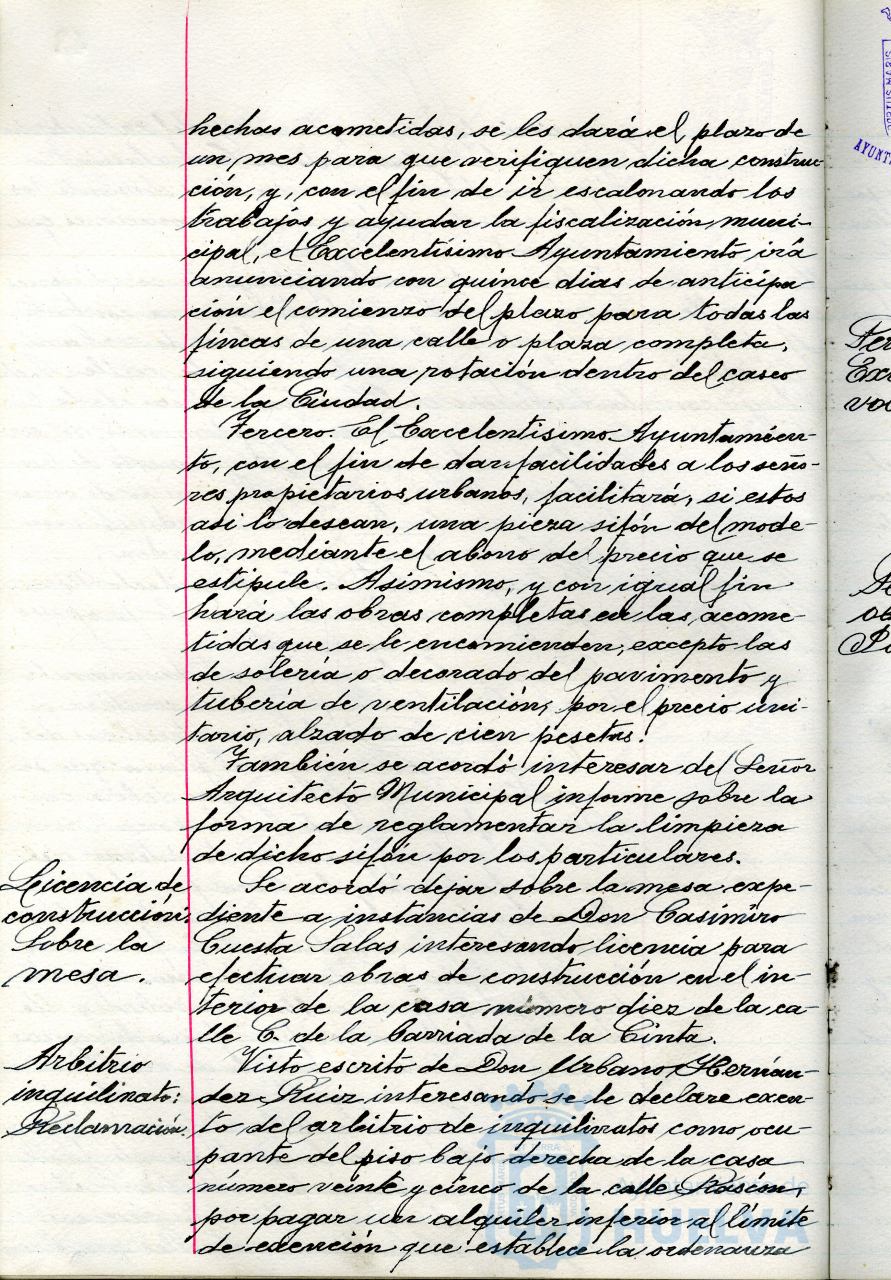 hechas acometidas, se les dará el plazo de
un mes para que verifiquen dicha construc-
ción, y, con el fin de ir escalonando los
trabajos y ayudar la fiscalización muni-
cipal, el Excelentísimo Ayuntamiento irá
anunciando con quince dias de anticipa-
ción el comienzo del plazo para todas las
fincas de una calle o plaza completa,
siguiendo una rotación dentro del casco
de la Ciudad.
Tercero. El Excelentísimo Ayuntamien-
to, con el fin de dar facilidades a los seño-
res propietarios urbanos, facilitará, si estos
asi lo desean, una pieza sifón del mode-
lo, mediante el abono del precio que se
estipule. Asimismo, y con igual fin
hará las obras completas en las acome-
tidas que se le encomienden, excepto las
de solería o decorado del pavimento y
tubería de ventilación, por el precio uni-
tario, alzado de cien pesetas.
También se acordó interesar del Señor
Arquitecto Municipal informe sobre la
forma de reglamentar la limpieza
de dicho sifón por los particulares.
Licencia de
construcción:
Sobre la
mesa.
Se acordó dejar sobre la mesa expe-
diente a instancias de Don Casimiro
Cuesta Salas interesando licencia para
efectuar obras de construcción en el in-
terior de la casa número diez de la ca-
lle C. de la barriada de la Cinta.
Arbitrio
inquilinato:
Reclamación.
Visto escrito de Don Urbano Hernán-
dez Ruiz interesando se le declare exen-
to del arbitrio de inquilinatos como ocu-
pante del piso bajo derecha de la casa
número veinte y cinco de la calle Rascón,
por pagar un alquiler inferior al límite
de exención que establece la ordenanza
HUELVA